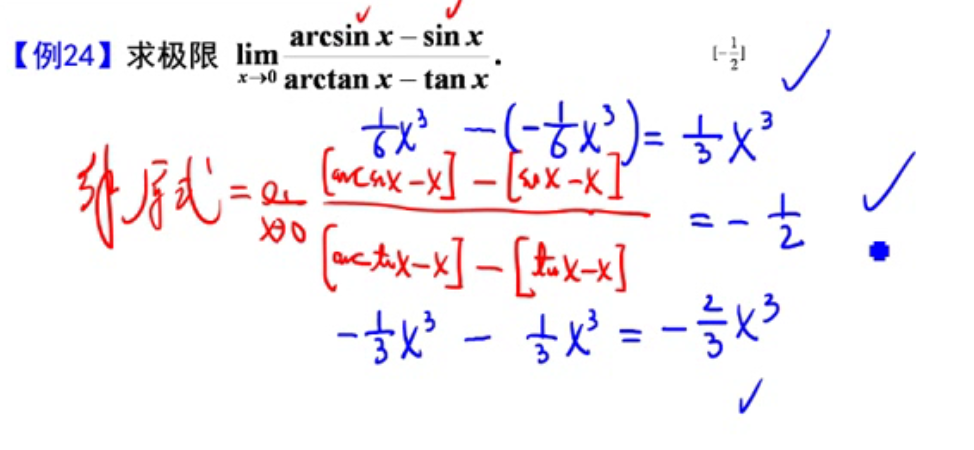 【例24】求极限 lim x→0 (arcsin x − sin x)/(arctan x − tan x). [−1/2]
1/6 x³ − (−1/6 x³) = 1/3 x³
解 原式 = lim x→0 ([arcsin x − x] − [sin x − x])/([arctan x − x] − [tan x − x]) = − 1/2
−1/3 x³ − 1/3 x³ = − 2/3 x³